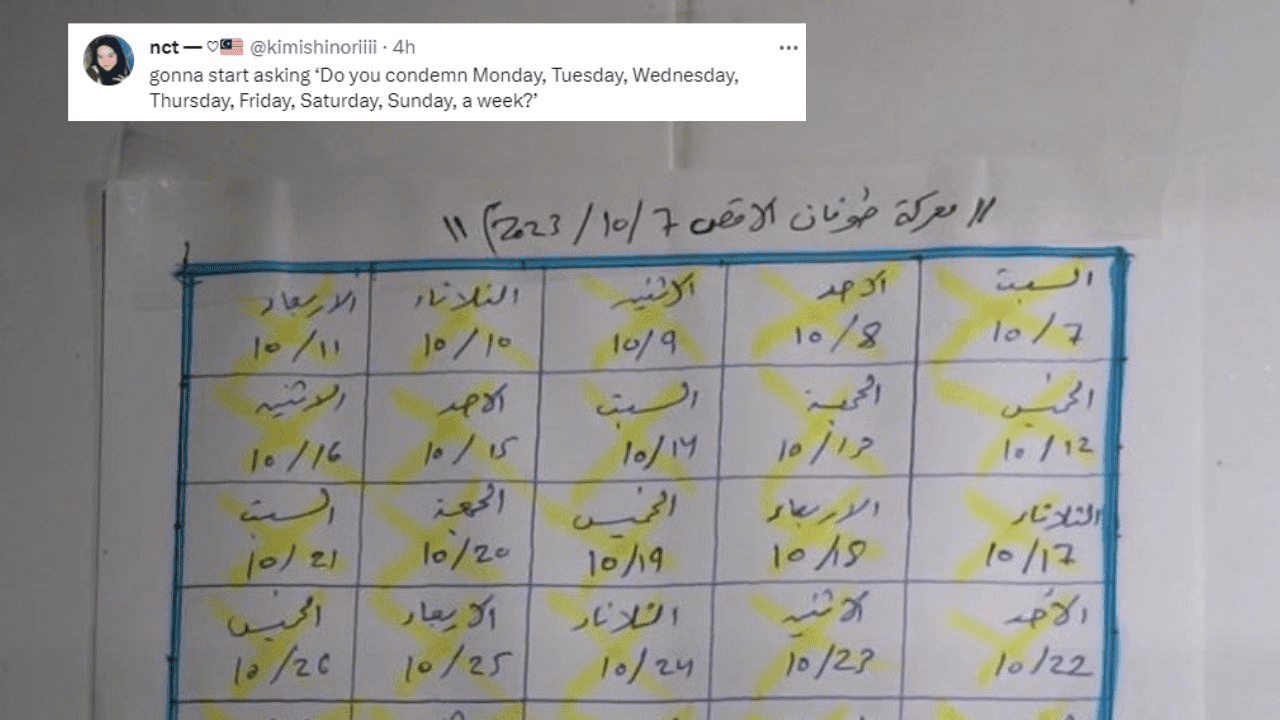 nct — ♡🇲🇾 @kimishinoriiii · 4h
gonna start asking ‘Do you condemn Monday, Tuesday, Wednesday,
Thursday, Friday, Saturday, Sunday, a week?’
"معركة طوفان الاقصى 2023/10/7)"
السبت الاحد الاثنين الثلاثاء الاربعاء
10/7 10/8 10/9 10/10 10/11
الخميس الجمعة السبت الاحد الاثنين
10/12 10/13 10/14 10/15 10/16
الثلاثاء الاربعاء الخميس الجمعة السبت
10/17 10/18 10/19 10/20 10/21
الأحد الاثنين الثلاثاء الاربعاء الخميس
10/22 10/23 10/24 10/25 10/26